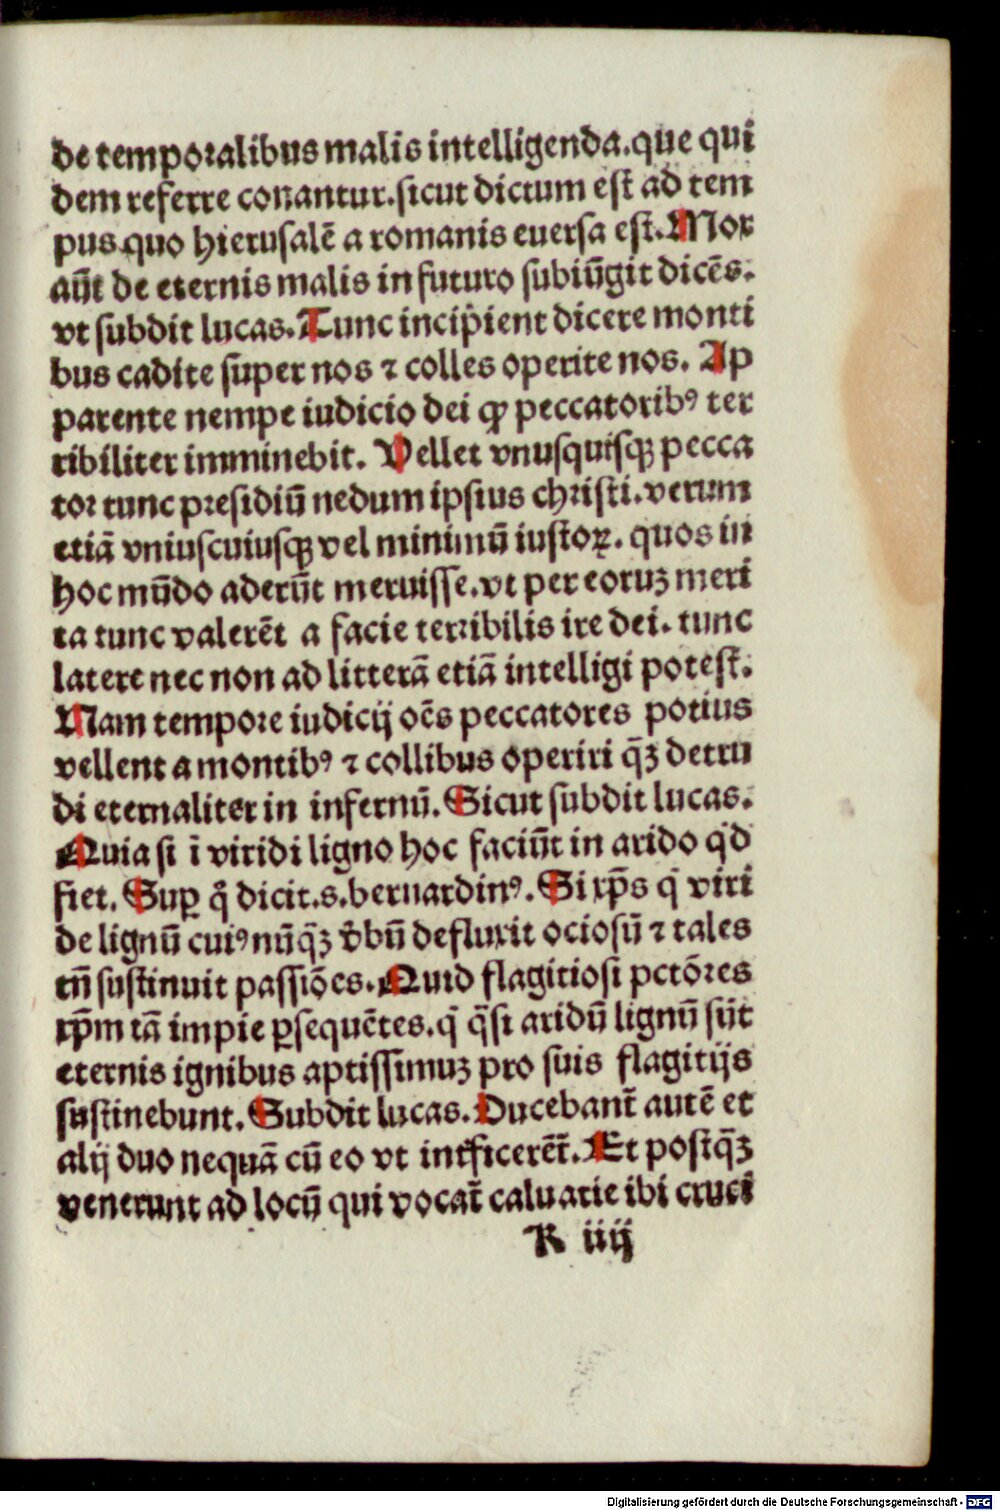 de temporalibus malis intelligenda.que qui
dem referre conantur.sicut dictum est ad tem
pus.quo hierusalē a romanis euersa est.Mox
aūt de eternis malis in futuro subiūgit dicēs.
vt subdit lucas.Tunc incipient dicere monti
bus cadite super nos ⁊ colles operite nos. Ap
parente nempe iudicio dei qꝫ peccatoribꝰ ter
ribiliter imminebit. Vellet vnusquisqꝫ pecca
tor tunc presidiū nedum ipsius christi.verum
etiā vniuscuiusqꝫ vel minimū iustoꝝ. quos in
hoc mūdo aderūt meruisse.vt per eoruꝫ meri
ta tunc valerēt a facie terribilis ire dei. tunc
latere nec non ad litterā etiā intelligi potest.
Nam tempore iudicij oēs peccatores potius
vellent a montibꝰ ⁊ collibus operiri q̄ꝫ detru
di eternaliter in infernū. Sicut subdit lucas.
Quia si ī viridi ligno hoc faciūt in arido qd̓
fiet. Suꝑ q̊ dicit.s.bernardinꝰ. Si xp̄s q̇ viri
de lignū cuiꝰ nūq̄ꝫ v̓bū defluxit ociosū ⁊ tales
tn̄ sustinuit passiōes.Quid flagitiosi pctōres
xp̄m tā impie ꝑsequētes.q̇ q̄si aridū lignū sūt
eternis ignibus aptissimuꝫ pro suis flagitijs
sustinebunt. Subdit lucas. Ducebant̄ autē et
alij duo nequā cū eo vt int̓ficerēt̄. Et postq̄ꝫ
venerunt ad locū qui vocat̄ caluarie ibi cruci
R iiij
Digitalisierung gefördert durch die Deutsche Forschungsgemeinschaft - DFG